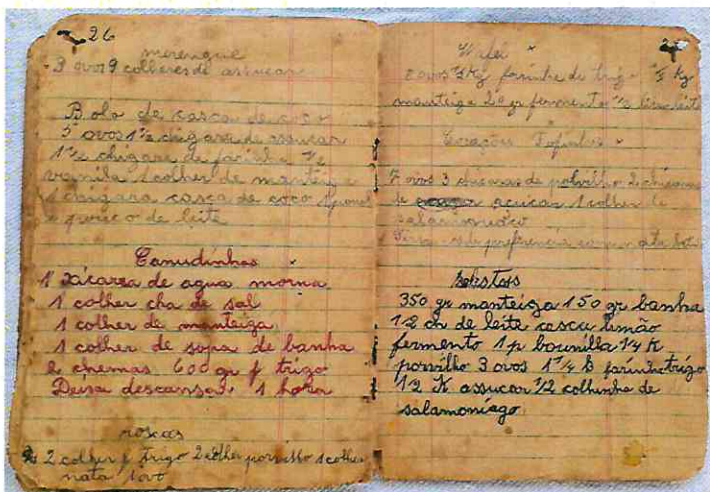 26
merengue
3 ovos 9 colheres de assucar
Bolo de casca de coco
5 ovos 1 1/2 chigara de assucar
1 1/2 chigara de farinha
vanila 1 colher de manteiga
1 chigara casca de coco
e pouco de leite
Canudinhos
1 xácarea de agua morna
1 colher cha de sal
1 colher de manteiga
1 colher de sopa de banha
2 chemas 600 gr f trigo
Deixa descansar 1 hora
roscas
2 colher f trigo 2 colher porvilho 1 colher
nata 1 ovo
ovos 1/2 Kg farinha de trigo 1/2 Kg
manteiga 20 gr fermento 1/2 leite
Corações
7 ovos 3 chicaras de polvilho 2 chicaras
de acucar 1 colher de
salamoneaco
350 gr manteiga 150 gr banha
12 ch de leite casca limão
fermento 1 p bounilla 1/4 K
porvilho 3 ovos 1 1/4 k farinha trigo
12 K assucar 1/2 colhinha de
salamoníago